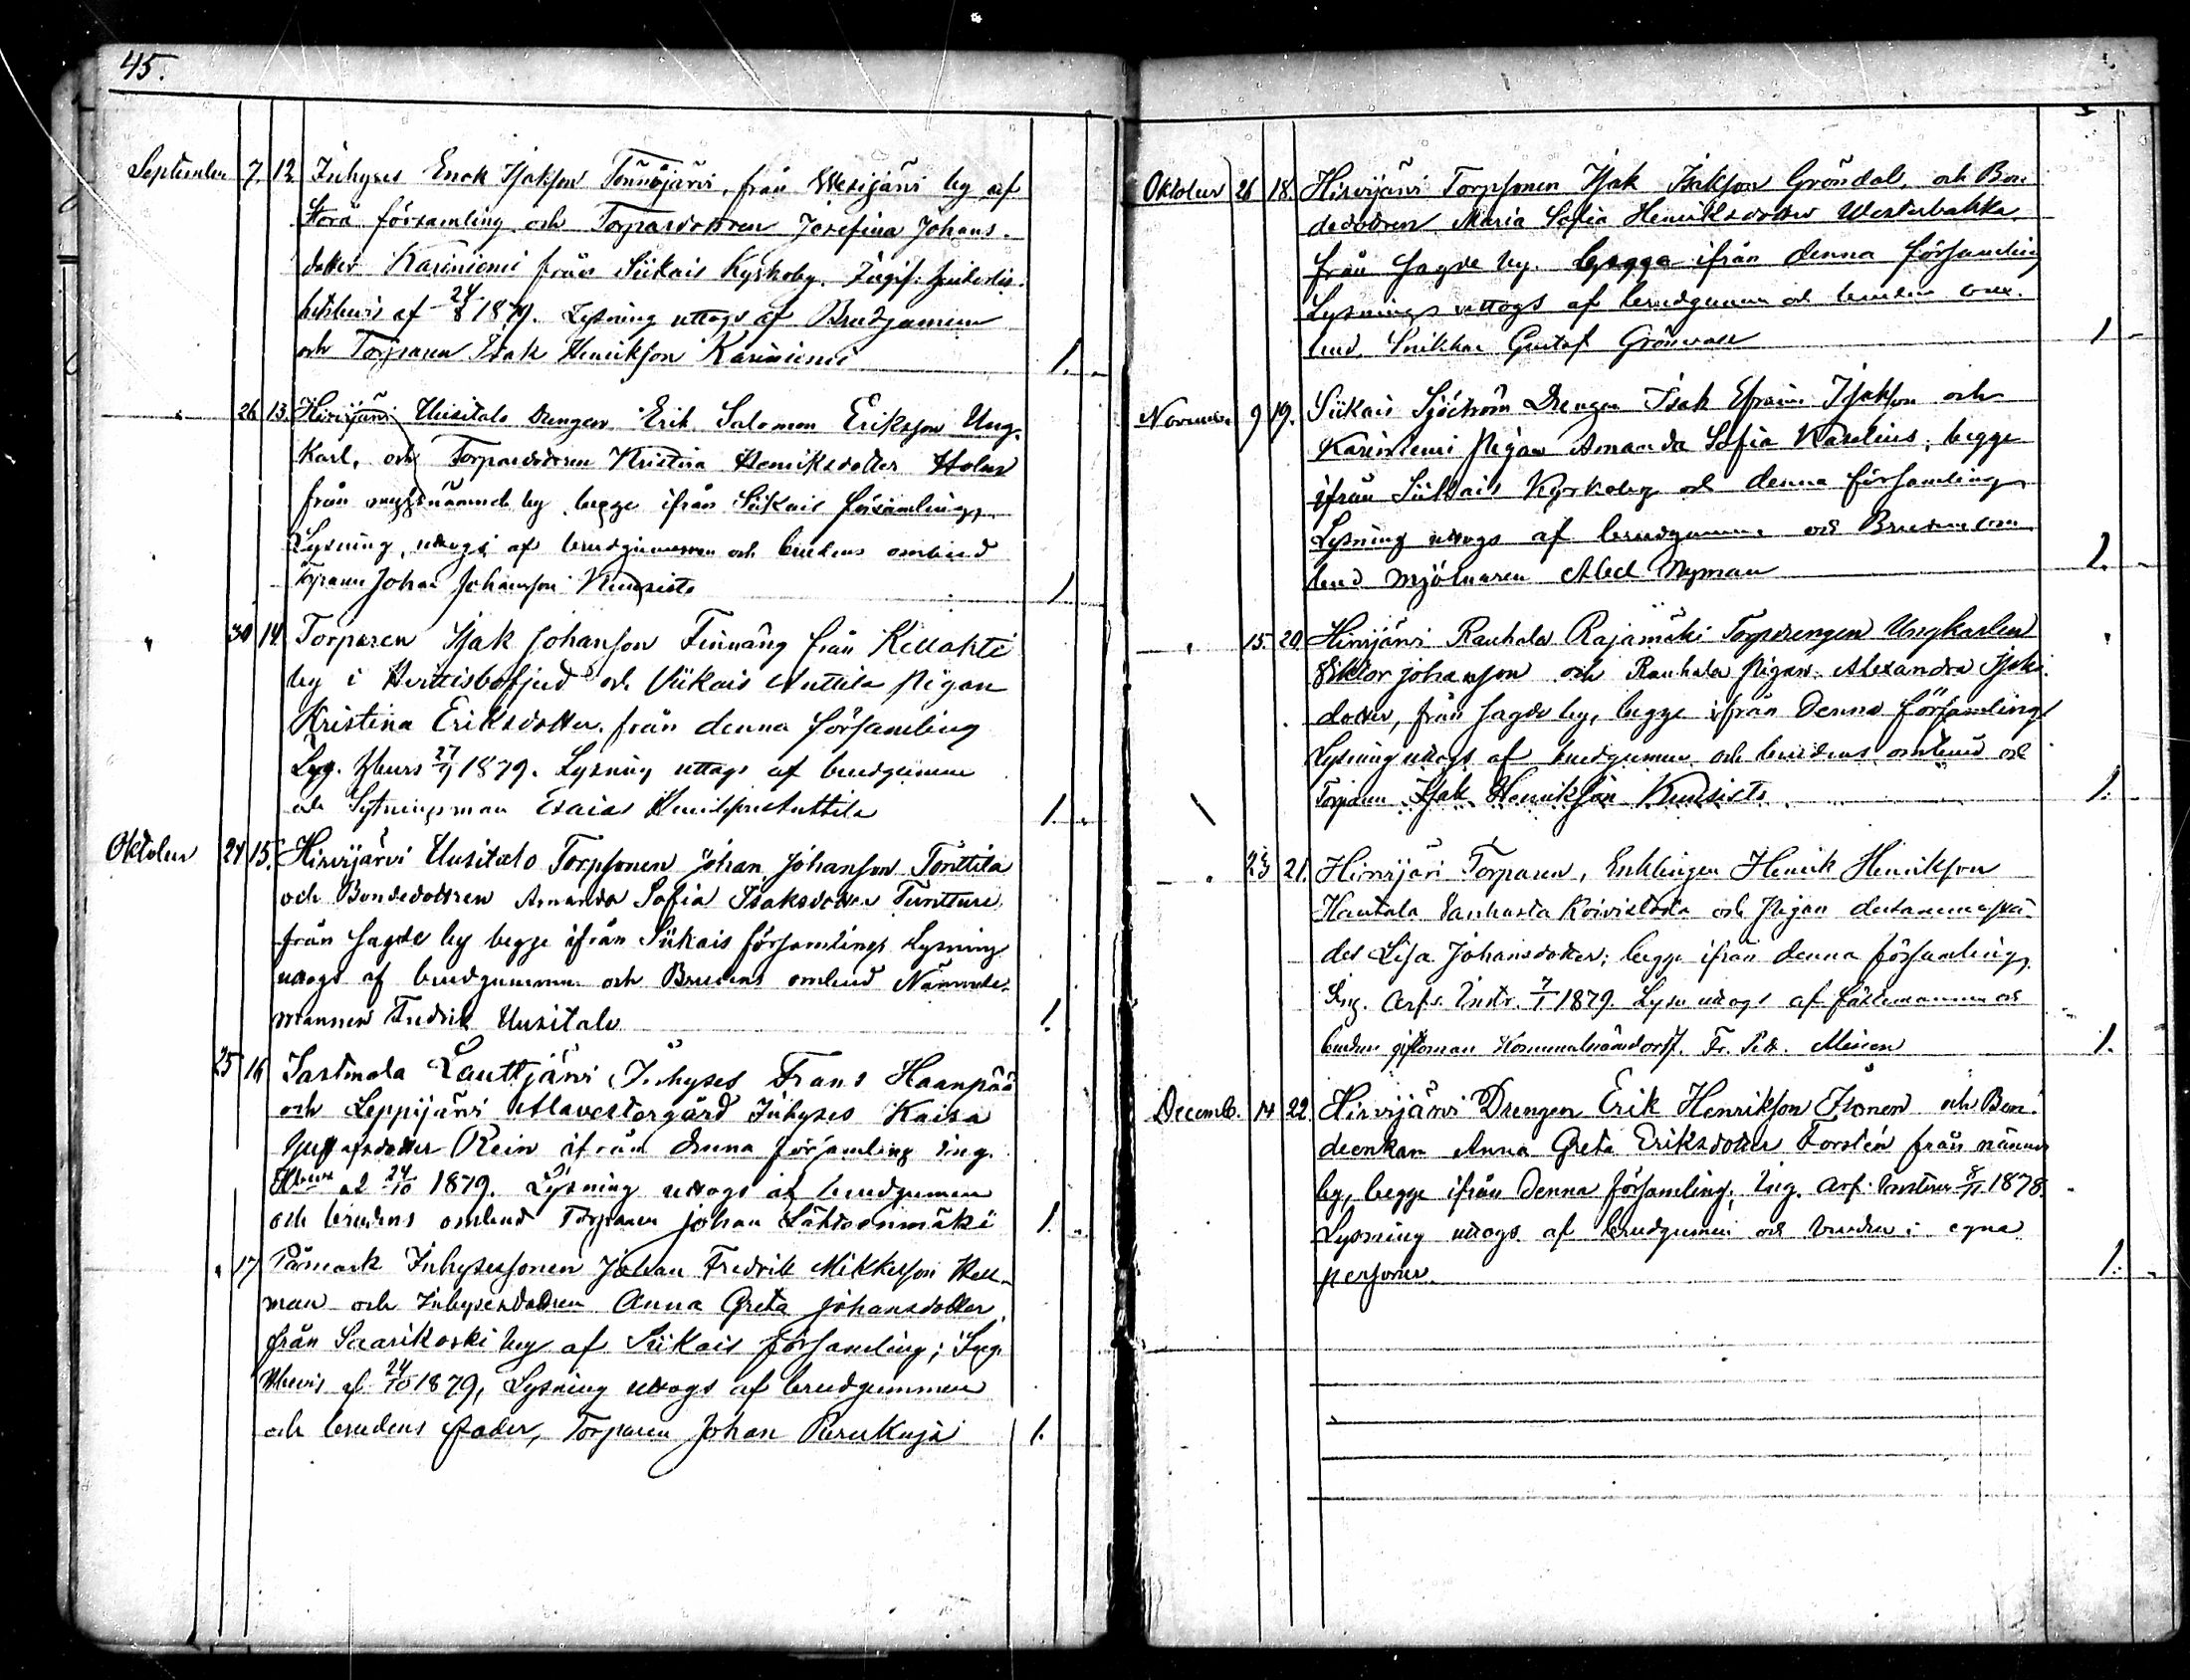 45.
September 7. 12 Inhyses Enok Isakson Tönnöjärvi, från Wesijärvi by af
Storå församling och Torparedottren Josefina Johans-
dotter Kariniemi från Siikais Kyrkoby.
af 24/8 1879. Lysning uttogs af Brudgummen
och Torparen Isak Henrikson Kariniemi 1.
" 26 13. Hirvijärvi Uusitalo Drengen Erik Salomon Erikson Ung-
karl, och Torparedottren Kristina Henriksdotter Holm
från nämnde by begge ifrån Siikais församling,
Lysning uttogs af brudgummen och brudens ombud
Torparen Johan Johanson 1
" 30 14. Torparen Isak Johanson Finnäng från Kellahti
by i och Siikais Anttila Pigan
Kristina Eriksdotter från denna församling
27/9 1879. Lysning uttogs af brudgummen
och Sytningsman Esaias Henrikson Anttila 1.
Oktober 24 15. Hirvijärvi Uusitalo Torpsonen Johan Johanson Tönttila
och Bondedottren Amanda Sofia Isaksdotter Tuntturi
från sagde by begge ifrån Siikais församling. Lysning
uttogs af brudgummen och Brudens ombud Nämnde-
mannen Fredrik Uusitalo 1.
25 16 Sastmola Lauttjärvi Inhyses Frans Haanpää
och Leppijärvi Alavestergård Inhyses Kaisa
Gustafsdotter Rein ifrån denna församling
24/10 1879. Lysning uttogs af brudgummen
och brudens ombud Torparen Johan Lähteenmäki 1.
" 17 Påmark Inhysessonen Johan Fredrik Mikkelson Hell-
man och Inhysesdottren Anna Greta Johansdotter
från Saarikoski by af Siikais församling;
af 24/10 1879, Lysning uttogs af brudgummen
och brudens fader, Torparen Johan 1.
Oktober 26 18. Hirvijärvi Torpsonen Isak Isakson Gröndal, och Bon-
dedottren Maria Sofia Henriksdotter Westerbakka
från sagde by. begge ifrån denna församling
Lysning uttogs af brudgummen och brudens om-
bud Snikkar Gustaf Grönvall 1
November 9 19. Siikais Sjöström Drengen Isak Efraim Isakson och
Kariniemi Pigan Amanda Sofia Kaselius, begge
ifrån Siikais Kyrkoby och denna församling
Lysning uttogs af brudgummen och Brudens om-
bud Mjölnaren Abel Nyman 1.
" 15. 20 Hirvijärvi Rauhala Rajamäki Torpdrengen Ungkarlen
Viktor Johanson och Rauhala Pigan Alexandra Isaks-
dotter, från sagde by, begge ifrån denna församling
Lysning uttogs af brudgummen och brudens ombud
Torparen Isak Henrikson 1.
" 23 21. Hirvijärvi Torparen, Enklingen Henrik Henrikson
Hautala Koivistosta och Pigan
Lisa Johansdotter; begge ifrån denna församling,
Ing. Arfs. Instr. 7/1 1879. Lysn uttogs af fästemannen och
brudens giftoman Kommunalnämdordf. Fr. 1.
Decemb. 14 22. Hirvijärvi Drengen Erik Henrikson Itänen och Bon-
deenkan Anna Greta Eriksdotter Forstén från nämnde
by, begge ifrån denna församling; Ing. Arf. 8/11 1878
Lysning uttogs af brudgummen och bruden i egna
personer. 1.